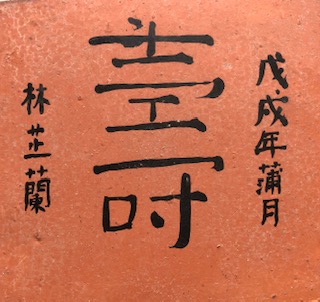 戊戌年蒲月
壽
林芷蘭